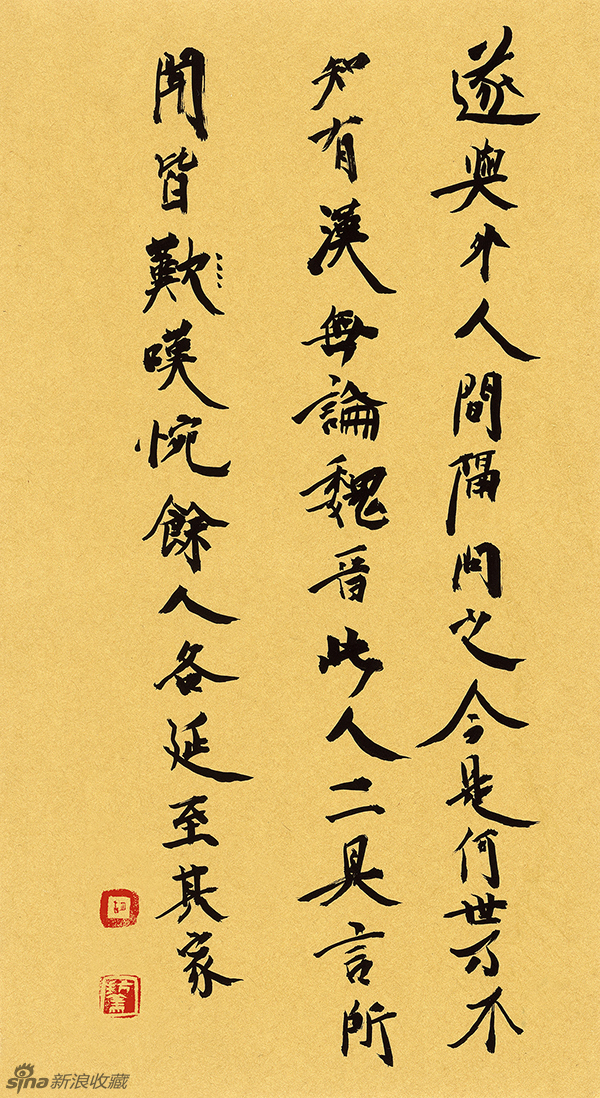 遂與外人間隔問之今是何世乃不
知有漢無論魏晉此人一一具言所
聞皆歎嘆惋餘人各延至其家
sina新浪收藏